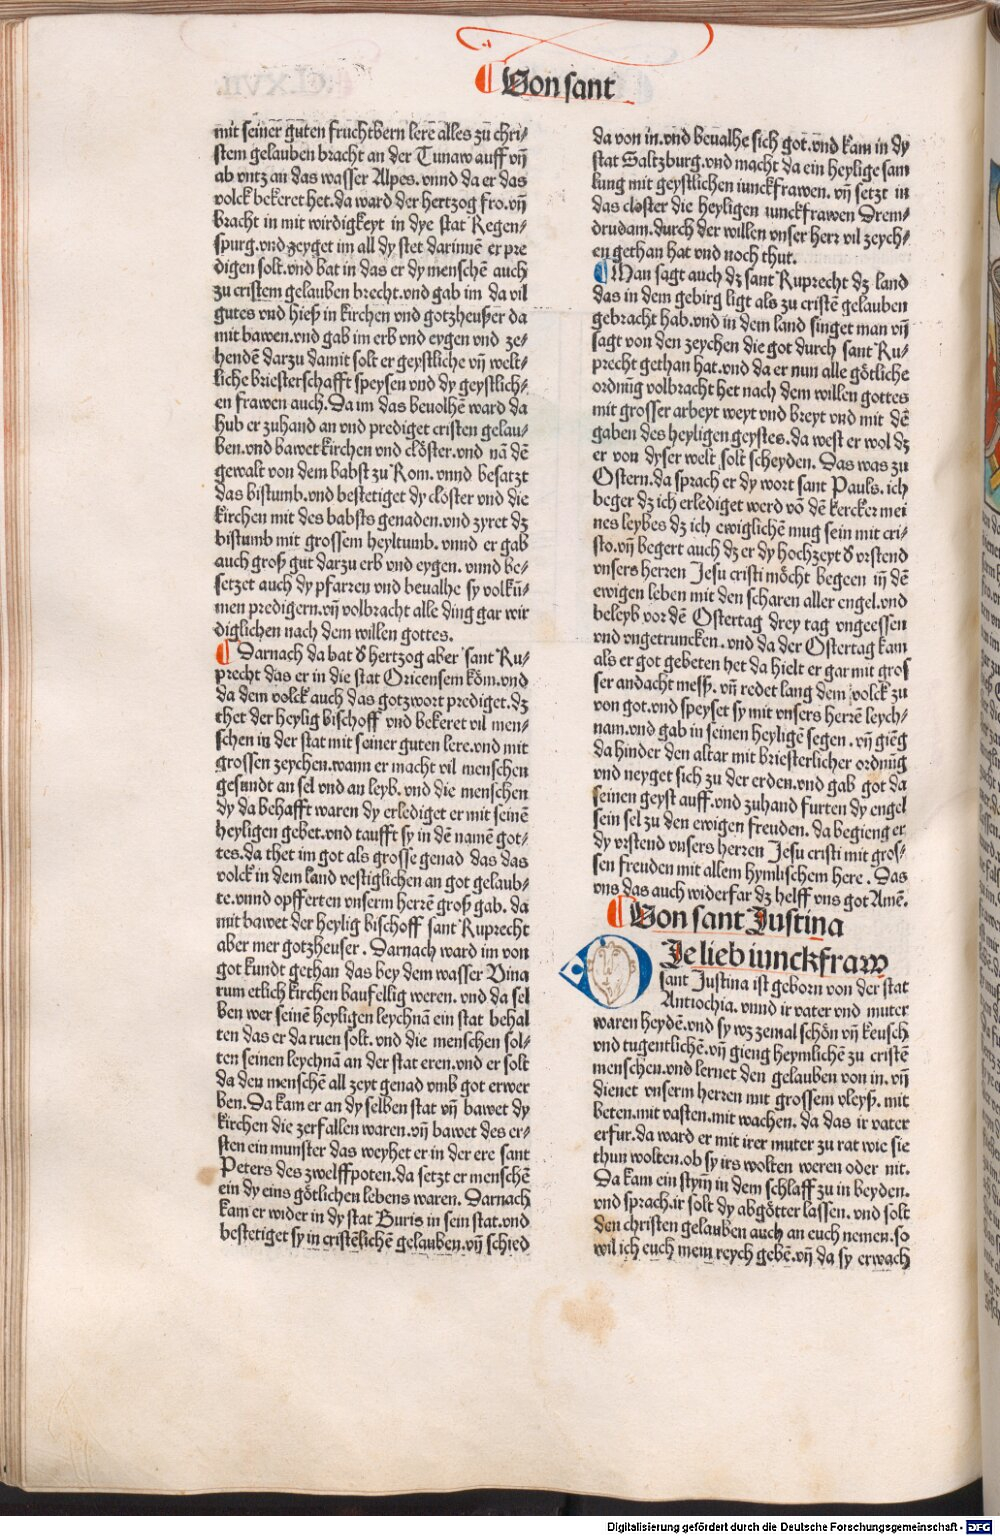 Von sant
mit seiner guten fruchtbern lere alles zu chri-
stem gelauben bracht an der Tunaw auff vñ
ab vntz an das wasser Alpes. vnnd da er das
volck bekeret het. da ward der hertzog fro. vñ
bracht in mit wirdigkeyt in dye stat Regen-
spurg. vnd zeyget im all dy stet darinnē er pre
digen solt. vnd bat in das er dy menschē auch
zu cristem gelauben brecht. vnd gab im da vil
gutes vnd hieß in kirchen vnd gotzheußer da
mit bawen. vnd gab im erb vnd eygen vnd ze-
hendē darzu damit solt er geystliche vñ welt-
liche briesterschafft speysen vnd dy geystlich-
en frawen auch. Da im das beuolhē ward da
hub er zuhand an vnd prediget cristen gelau-
ben. vnd bawet kirchen vnd clöster. vnd nā dē
gewalt von dem babst zu Rom. vnnd besatzt
das bistumb. vnd bestetiget dy closter vnd die
kirchen mit des babsts genaden. vnd zyret dz
bistumb mit grossem heyltumb. vnnd er gab
auch groß gut darzu erb vnd eygen. vnnd be-
setzet auch dy pfarren vnd beualhe sy volkū-
men predigern. vñ volbracht alle ding gar wir
diglichen nach dem willen gottes.
Darnach da bat d hertzog aber sant Ru-
precht das er in die stat Oricensem köm. vnd
da dem volck auch das gotzwort prediget. dz
thet der heylig bischoff vnd bekeret vil men-
schen in der stat mit seiner guten lere. vnd mit
grossen zeychen. wann er macht vil menschen
gesundt an sel vnd an leyb. vnd die menschen
dy da behafft waren dy erlediget er mit seinē
heyligen gebet. vnd taufft sy in dē namē got-
tes. da thet im got als grosse genad das das
volck in dem land vestiglichen an got gelaub-
te. vnnd opfferten vnserm herrē groß gab. da
mit bawet der heylig bischoff sant Ruprecht
aber mer gotzheuser. Darnach ward im von
got kundt gethan das bey dem wasser Vina
rum etlich kirchen baufellig weren. vnd da sel
ben wer seinē heyligen leychnā ein stat behal
ten das er da ruen solt. vnd die menschen sol-
ten seinen leychnā an der stat eren. vnd er solt
da den menschē all zeyt genad vmb got erwer
ben. Da kam er an dy selben stat vñ bawet dy
kirchen die zerfallen waren. vñ bawet des er-
sten ein munster das weyhet er in der ere sant
Peters des zwelffpoten. da setzt er menschē
ein dy eins götlichen lebens waren. Darnach
kam er wider in dy stat Buris in sein stat. vnd
bestetiget sy in cristēlichē gelauben. vñ schied
da von in. vnd beualhe sich got. vnd kam in dy
stat Saltzburg. vnd macht da ein heylige sam
lung mit geystlichen iunckfrawen. vñ setzt in
das closter die heyligen iunckfrawen Drem-
drudam. durch der willen vnser herr vil zeych-
en gethan hat vnd noch thut.
Man sagt auch dz sant Ruprecht dz land
das in dem gebirg ligt als zu cristē gelauben
gebracht hab. vnd in dem land singet man vñ
sagt von den zeychen die got durch sant Ru-
precht gethan hat. vnd da er nun alle götliche
ordnūg volbracht het nach dem willen gottes
mit grosser arbeyt weyt vnd breyt vnd mit dē
gaben des heyligen geystes. da west er wol dz
er von dyser welt solt scheyden. Das was zu
Ostern. da sprach er dy wort sant Pauls. ich
beger dz ich erlediget werd vō dē kercker mei
nes leybes dz ich ewiglichē mug sein mit cri-
sto. vñ begert auch dz er dy hochzeyt d vrstend
vnsers herren Jesu cristi möcht begeen iñ dē
ewigen leben mit den scharen aller engel. vnd
beleyb vor dē Ostertag drey tag vngeessen
vnd vngetruncken. vnd da der Ostertag kam
als er got gebeten het da hielt er gar mit gros
ser andacht meß. vñ redet lang dem volck zu
von got. vnd speyset sy mit vnsers herrē leych-
nam. vnd gab in seinen heyligē segen. vñ giēg
da hinder den altar mit briesterlicher ordnūg
vnd neyget sich zu der erden. vnd gab got da
seinen geyst auff. vnd zuhand furten dy engel
sein sel zu den ewigen freuden. da begieng er
dy vrstend vnsers herren Jesu cristi mit gros-
sen freuden mit allem hymlischem here. Das
vns das auch widerfar dz helff vns got Amē.
Von sant Justina
DJe lieb iunckfraw
sant Justina ist geborn von der stat
Antiochia. vnnd ir vater vnd muter
waren heydē. vnd sy wz zemal schön vñ keusch
vnd tugentlichē. vñ gieng heymlichē zu cristē
menschen. vnd lernet den gelauben von in. vñ
dienet vnserm herren mit grossem vleyß. mit
beten. mit vasten. mit wachen. da das ir vater
erfur. da ward er mit irer muter zu rat wie sie
thun wolten. ob sy irs wolten weren oder nit.
Da kam ein stym̄ in dem schlaff zu in beyden.
vnd sprach. ir solt dy abgötter lassen. vnd solt
den christen gelauben auch an euch nemen. so
wil ich euch mein reych gebē. vñ da sy erwach
Digitalisierung gefördert durch die Deutsche Forschungsgemeinschaft - DFG